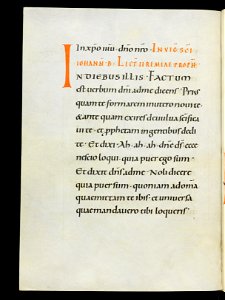 In xpo ihu dno nro. In vig sci
iohann b. Lect ieremiae proph
In diebus illis. Factum
est verbum dni ad me dicens. Prius
quam te formarem in utero novi te.
& ante quam exires de vulva sci fica
vi te. & pphetam in gentibus dedi
te. Et dixi. Ah. ah. ah. dne ds. ecce
nescio loqui. quia puer ego sum.
Et dixit dns ad me. Noli dicere
quia puer sum. quoniam ad omnia
quae mittam te ibis. et universa
quae mandavero tibi loqueris.